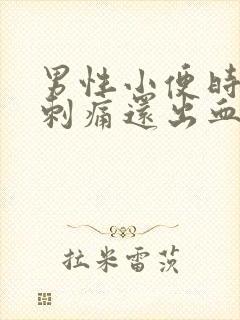 男性小便時
刺痛還出血
拉米雷茨